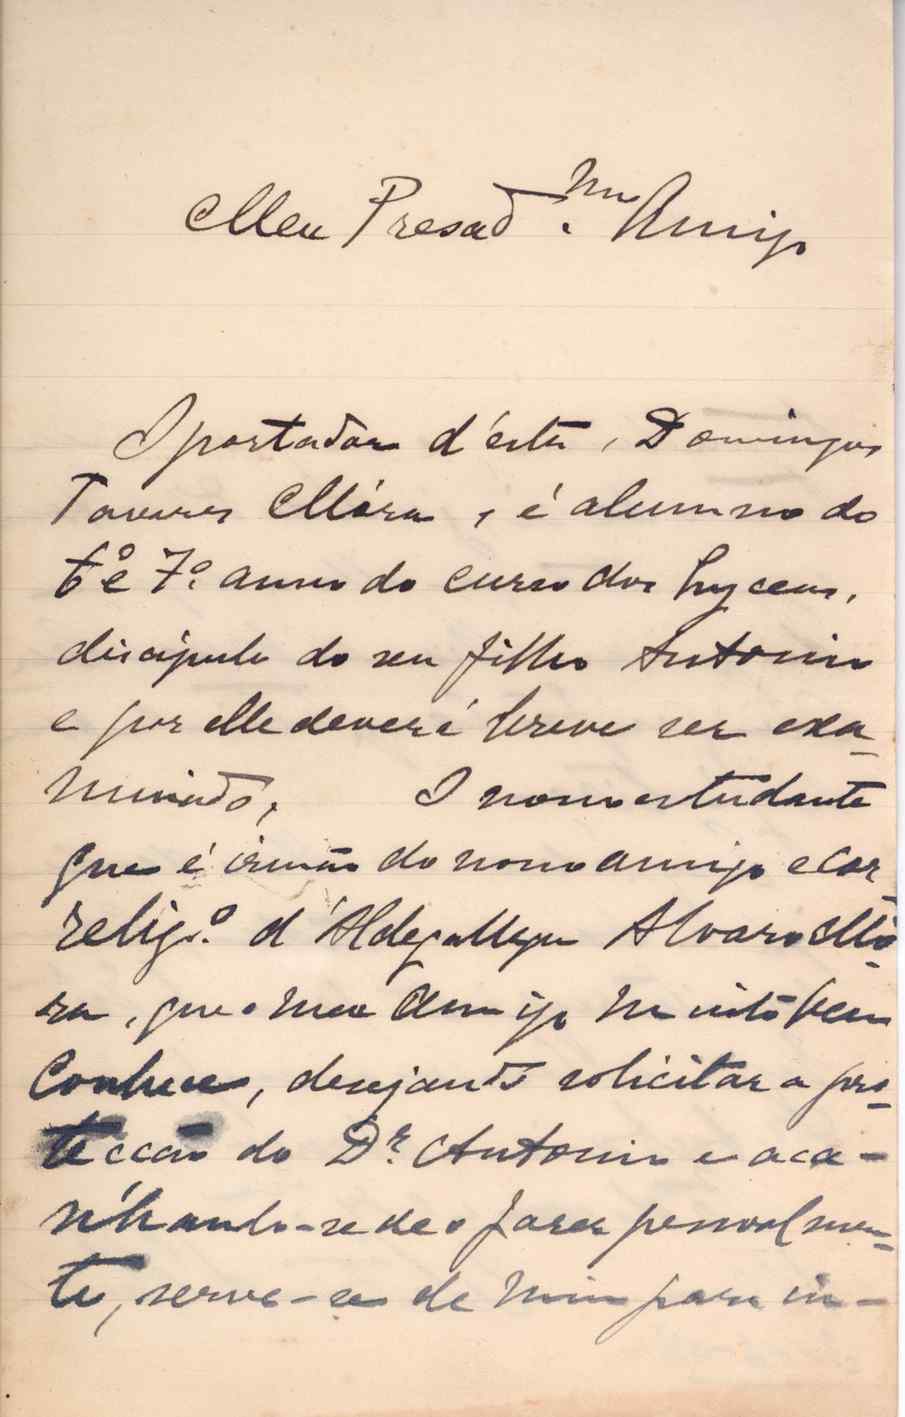 Meu Presad.mo Amigo
O portador d'esta, Domingos
Tavares Móra, é alumno do
6º e 7º anno do curso dos Lyceus,
discipulo do seu filho Antonio
e por elle deverá breve ser exa-
minado. O nosso estudante
que é irmão do nosso amigo e cor-
relig.º d'Aldegallega Alvaro Mó-
ra, que o meu Amigo muito bem
conhece, desejando solicitar a pro-
tecção do Dr. Antonio e aca-
nhando-se de o fazer pessoalmen-
te, serve-se de mim para in-